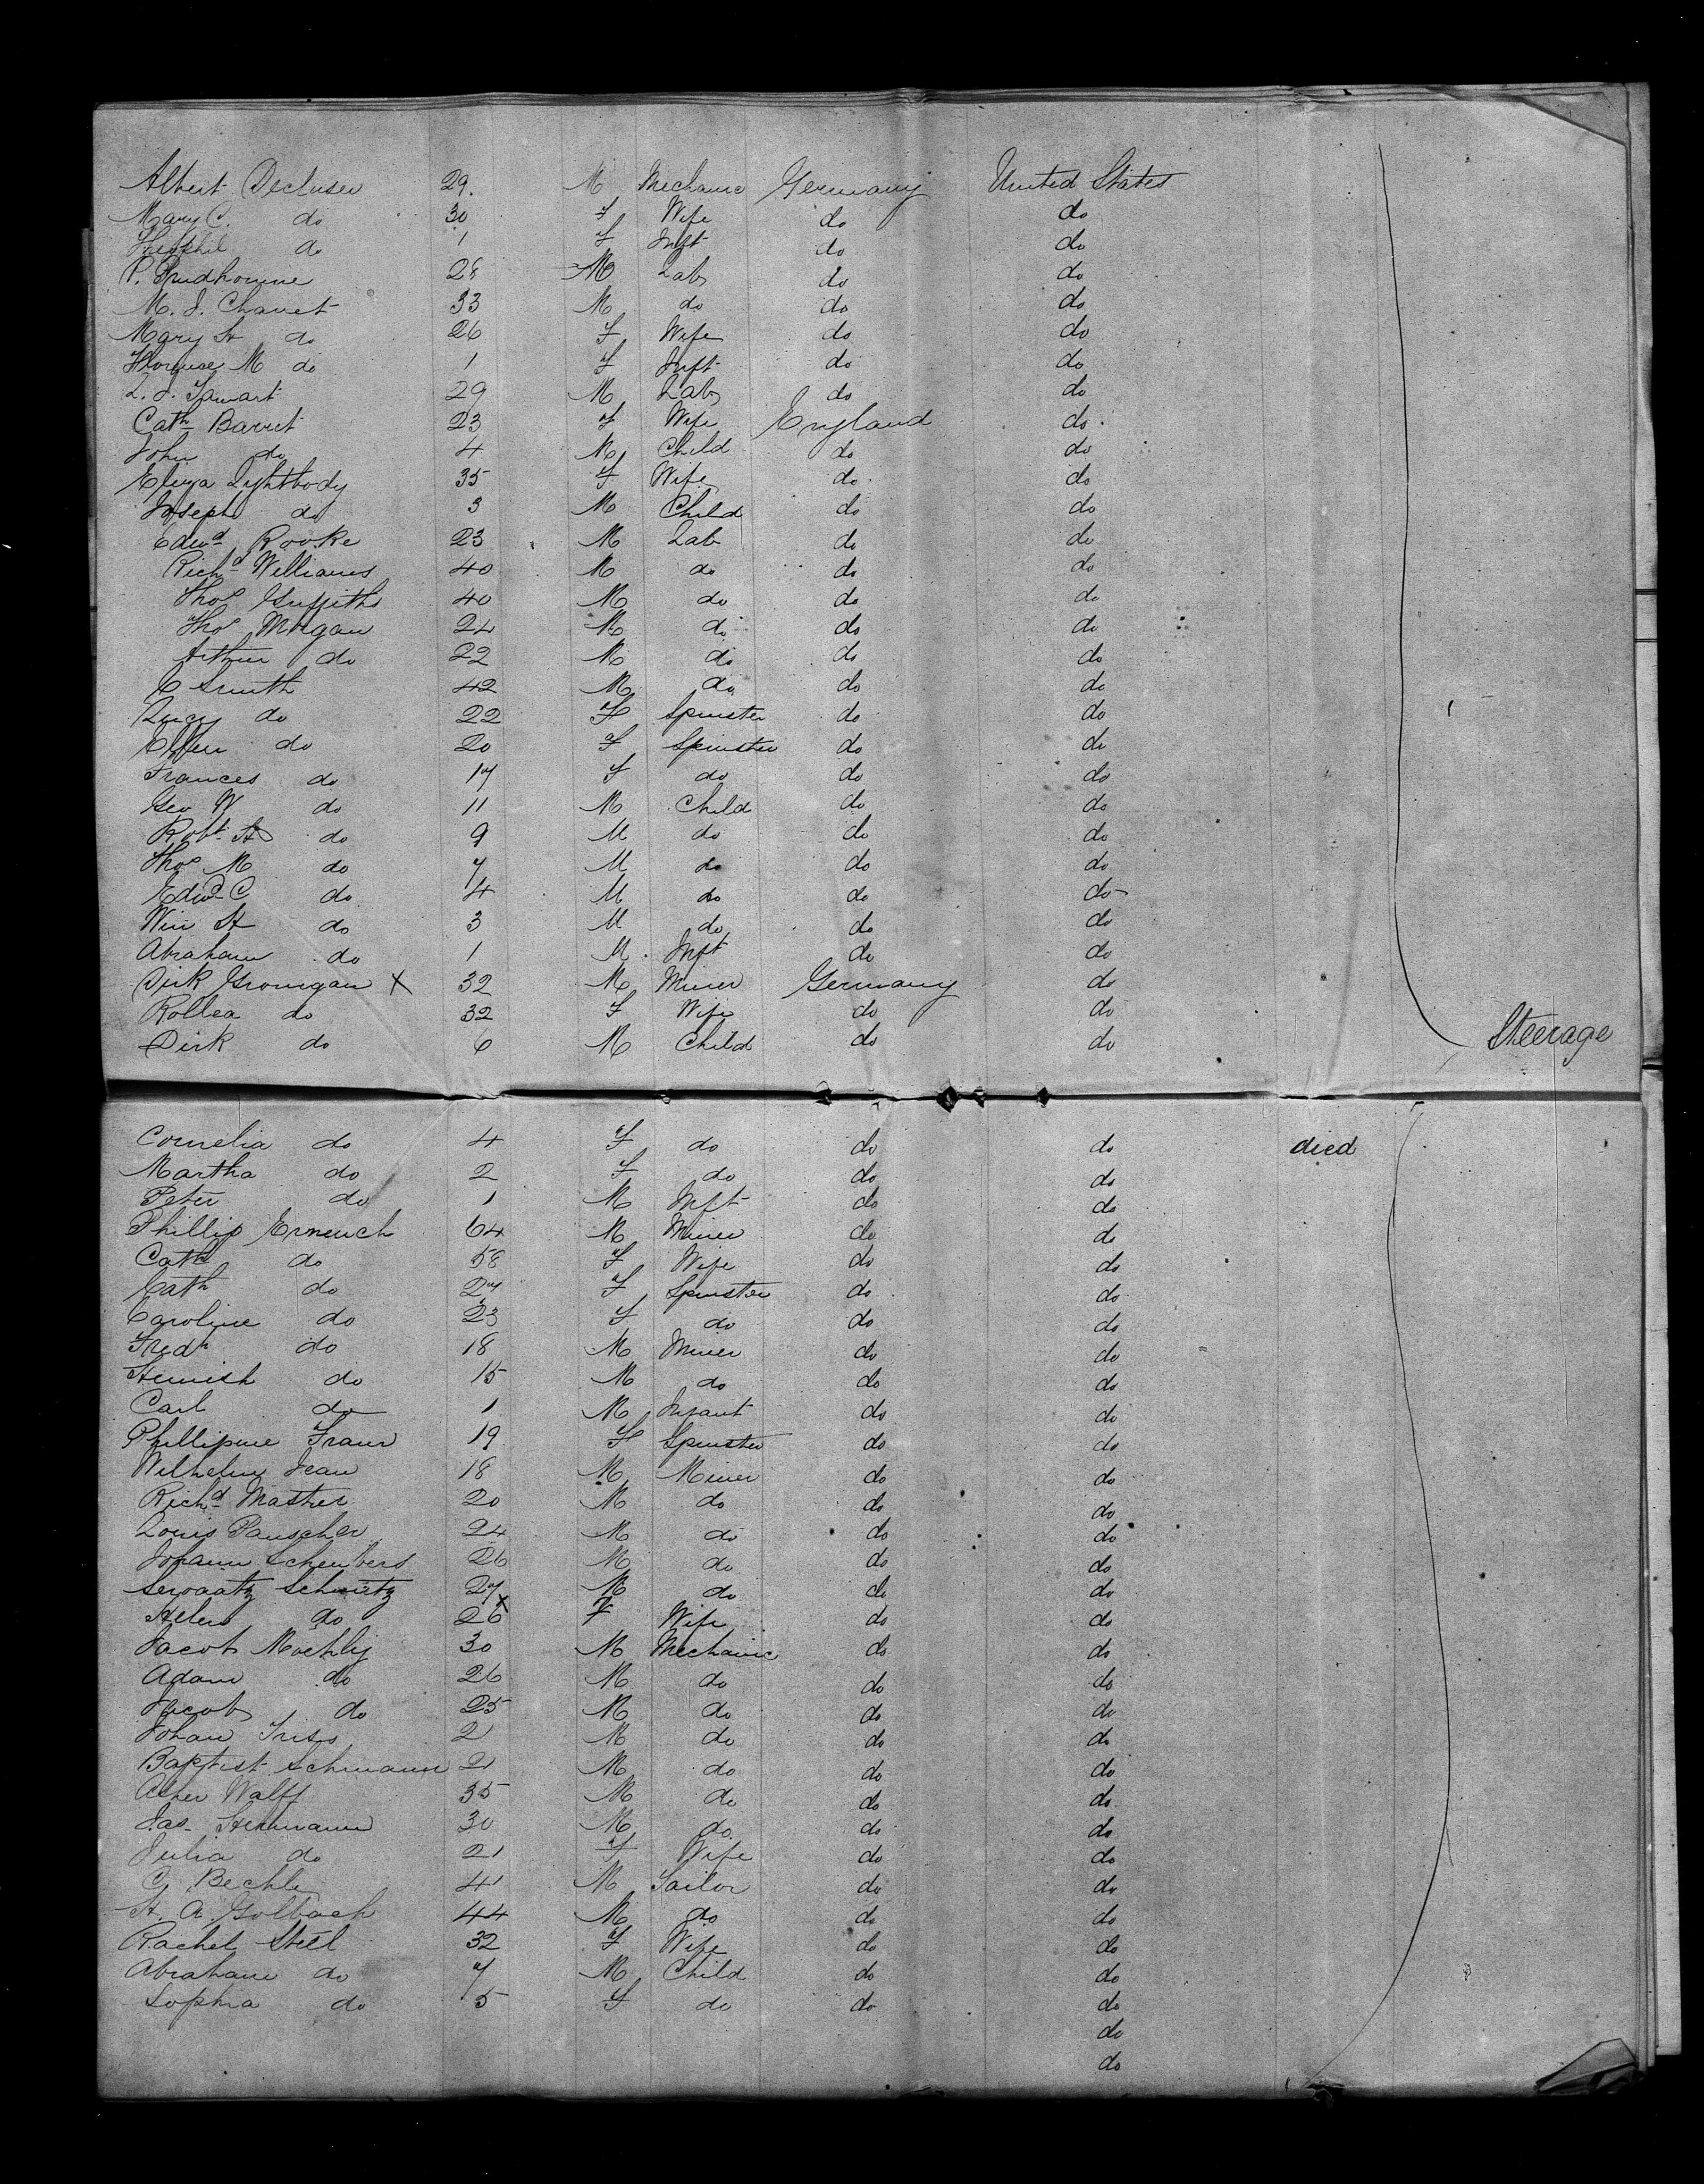 Albert Decluser 29. M Mechanic Germany United States
Mary C. do 30 F Wife do do
Theophil do 1 F Inft do do
P. Prudhomme 28 M Lab do do
M. J. Chavet 33 M do do do
Mary A do 26 F Wife do do
Florence M do 1 F Inft do do
L. J. 29 M Lab do do
Cath Barret 23 F Wife England do
John do 4 M Child do do
Eliza Lightbody 35 F Wife do do
Joseph do 3 M Child do do
Edwd Rooke 23 M Lab do do
Richd Williams 40 M do do do
Thos Griffiths 40 M do do do
Thos Morgan 24 M do do do
Arthur do 22 M do do do
C Smith 42 M do do do
Lucy do 22 F Spinster do do
Ellen do 20 F Spinster do do
Frances do 17 F do do do
Geo W do 11 M Child do do
Robt A do 9 M do do do
Thos M do 7 M do do do
Edwd C do 4 M do do do
Wm A do 3 M do do do
Abraham do 1 M Inft do do
Dirk Gronigan X 32 M Miner Germany do
Rollea do 32 F Wife do do
Dirk do 6 M Child do do Steerage
Cornelia do 4 F do do do died
Martha do 2 F do do do
Peter do 1 M Inft do do
Phillip Ermerich 64 M Miner do do
Cath do 58 F Wife do do
Cath do 27 F Spinster do do
Caroline do 23 F do do do
Fredk do 18 M Miner do do
Heinrich do 15 M do do do
Carl do 1 M Infant do do
Phillipine Franz 19 F Spinster do do
Wilhelm Jean 18 M Miner do do
Richd Mather 20 M do do do
Louis Pauscher 24 M do do do
Johann Schenbers 26 M do do do
Servaatz Schmitz 27 M do do do
Helen do 26 X F Wife do do
Jacob Mochly 30 M Mechanic do do
Adam do 26 M do do do
Jacob do 25 M do do do
Johan Friss 21 M do do do
Baptist Schmann 21 M do do do
Asher Walff 35 M do do do
Jas Hermann 30 M do do do
Julia do 21 F Wife do do
C. Bechle 41 M Tailor do do
H. A. Golbach 44 M do do do
Rachel Steel 32 F Wife do do
Abraham do 7 M Child do do
Sophia do 5 F do do do
do
do